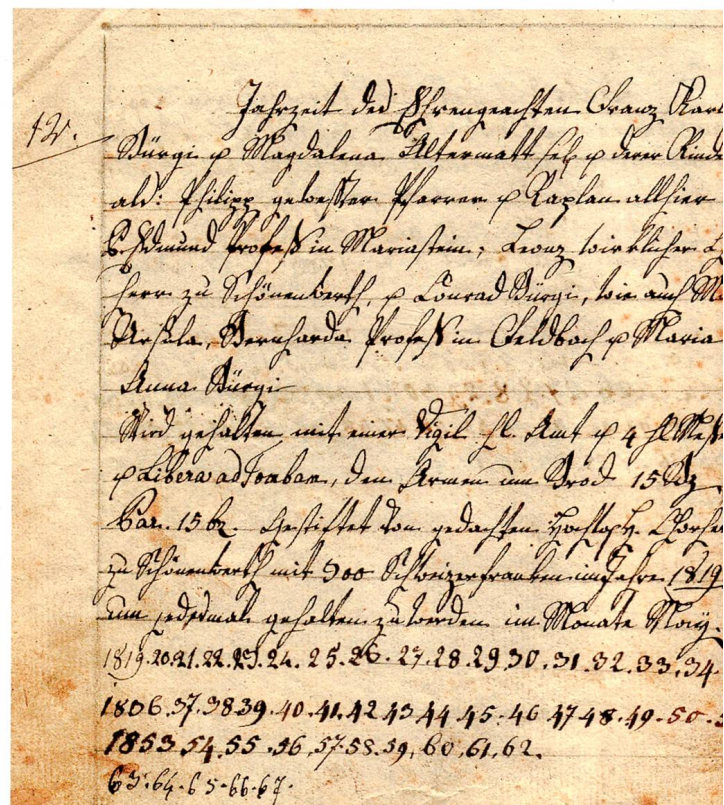 12.
Jahrzeit des Ehrengeachten Franz Kar
Bürgi u Magdalena Altermatt sel. u derer Kinde
als: Philipp gewesster Pfarrer u Kaplan allhier
P. Edmund Profess in Mariastein, Leonz wirklicher
herr zu Schönenwerth, u Conrad Bürgi, wie auch M
Urschla, Bernharda Profess in Feldbach u Maria
Anna Bürgi
Wird gehalten mit einer Vigil hl. Amt u 4 hl Messe
u Libera ad Tombam, den Armen um Brod 15 Bz
Par. 15 bz. Gestiftet von gedachten Chorhe
zu Schönenwerth mit 300 Schweizerfranken im Jahre 1819
um jedesmal gehalten zu werden im Monate May.
1819.20.21.22.23.24.25.26.27.28.29.30.31.32.33.34.
1836.37.38 39.40.41.42 43 44.45.46 47 48.49.50.
1853.54.55.56.57.58.59,60,61,62.
63.64.65.66.67.